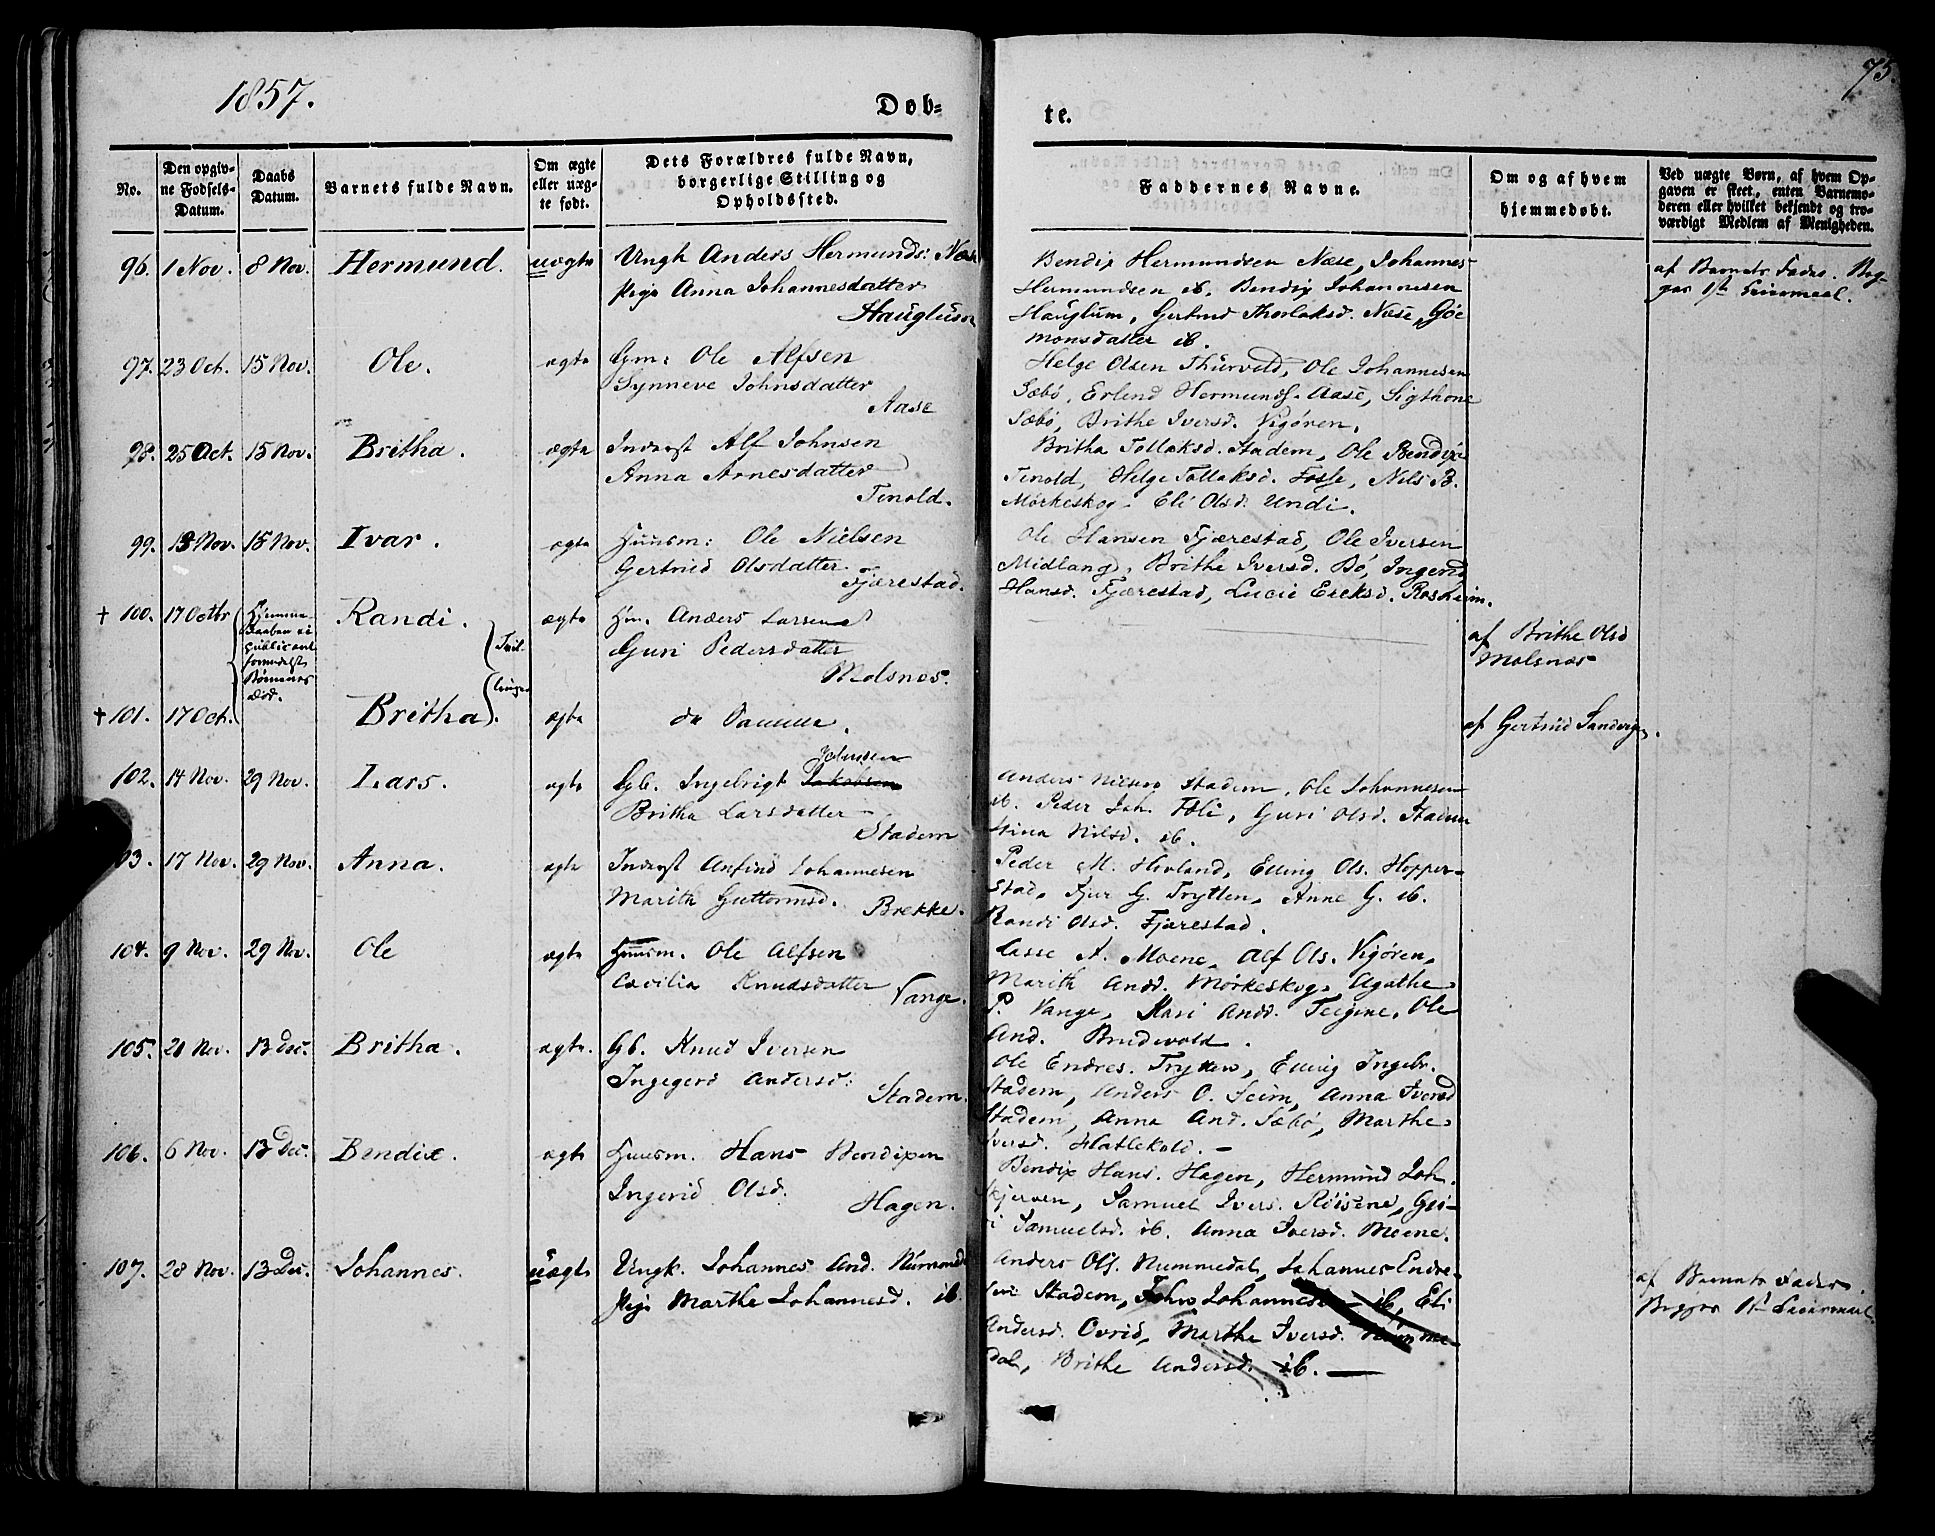 1857.
75.
Døb-
te.
No.
Den opgiv-
ne Fødsels-
Datum.
Daabs
Datum.
Barnets fulde Navn.
Om ægte
eller uæg-
te født.
Dets Forældres fulde Navn,
borgerlige Stilling og
Opholdssted.
Faddernes Navne.
Om og af hvem
hjemmedøbt.
Ved uægte Børn, af hvem Op-
gaven er skeet, enten Barnemo-
deren eller hvilket bekjendt og tro-
værdigt Medlem af Menigheden.
96. 1 Nov. 8 Nov. Hermund. uægte
Ungk Anders Hermunds: Næse
Pige Anna Johannesdatter
Hauglum
Bendix Hermundsen Næse, Johannes
Hermundsen ib. Bendix Johannesen
Hauglum, Gertrud Thorlaksd. Næse,
monsdatter ib.
af Barnets Fader. Beg-
ges 1ste Leiermaal.
97. 23 Oct. 15 Nov. Ole. ægte
Gm: Ole Alfsen
Synneve Johnsdatter
Aase
Helge Olsen Thurvold, Ole Johannesen
Sæbø, Erlend Hermunds. Aase, Sigthone
Sæbø, Brithe Iversd. Vigøren.
98. 25 Oct. 15 Nov. Britha. ægte
Inderst Alf Johnsen
Anna Arnesdatter
Tenold.
Britha Tollaksd. Stadem, Ole Bendix
Tenold, Helge Tollaksd. Fosse, Nils B.
Mørkeskog. Eli Olsd. Undi.
99. 13 Nov. 15 Nov. Ivar. ægte
Huusm: Ole Nielsen
Gertrud Olsdatter.
Fjærestad.
Ole Hansen Fjærestad, Ole Iversen
Midlang, Brithe Iversd. Bø, Ingerid
Hansd. Fjærestad, Lucie Ereksd. Rosheim.
+ 100. 17 Octbr
Hjemme-
daaben ei
publiceret
formedelst
Børnenes
Død.
Randi. Tvil- ægte
Hm. Anders Larsen
Guri Pedersdatter
Molsnes.
af Brithe Olsd
Molsnæs
+ 101. 17 Oct. Britha. linger ægte
de Samme.
af Gertrud Sandvigen.
102. 14 Nov. 29 Nov. Lars. ægte
Johnsen
Gb. Ingebrigt Jakobsen
Britha Larsdatter
Stadem
Anders Nielsen Stadem, Ole Johannesen
ib. Peder Joh. Føli, Guri Olsd. Stadem
Stina Nilsd. ib.
103. 17 Nov. 29 Nov. Anna. ægte
Inderst Anfind Johannesen
Marith Guttormsd. Brekke.
Peder M. Hovland, Elling Ols. Hopper-
stad, Sjur G. Trytten, Anne G. ib.
Randi Olsd. Fjærestad.
104. 9 Nov. 29 Nov. Ole ægte
Huusm. Ole Alfsen
Cecilia Knudsdatter Vange.
Lasse A. Moene, Alf Ols. Vigøren,
Marith Andd. Mørkeskog, Agathe
P. Vange, Kari Andd. Teigene, Ole
And. Brudevold.
105. 21 Nov. 13 Dec. Britha. ægte.
Gb. Knud Iversen
Ingegerd Andersd:
Stadem.
Ole Endres. Trytten, Elling Ingebr.
Stadem, Anders O. Seim, Anna Iversd
Stadem, Anna And. Sæbø, Marthe
Iversd. Hatlekold.
106. 6 Nov. 13 Dec. Bendix. ægte
Huusm. Hans Bendixen
Ingerid Olsd.
Hagen.
Bendix Hans. Hagen, Hermund Joh.
Skjerven, Samuel Ivers. Røisene, Gu-
ri Samuelsd. ib. Anna Iversd. Moene.
107. 28 Nov. 13 Dec. Johannes. uægte
Ungk. Johannes And. Nummed
Pige Marthe Johannesd. ib
Anders Ols. Nummedal, Johannes Endre-
sen Stadem, John Johannes ib, Eli
Andersd. Ovrid, Marthe Iversd. Numme-
dal, Brithe Andersd. ib.
af Barnets Fader.
Begges 1ste Leiermaal